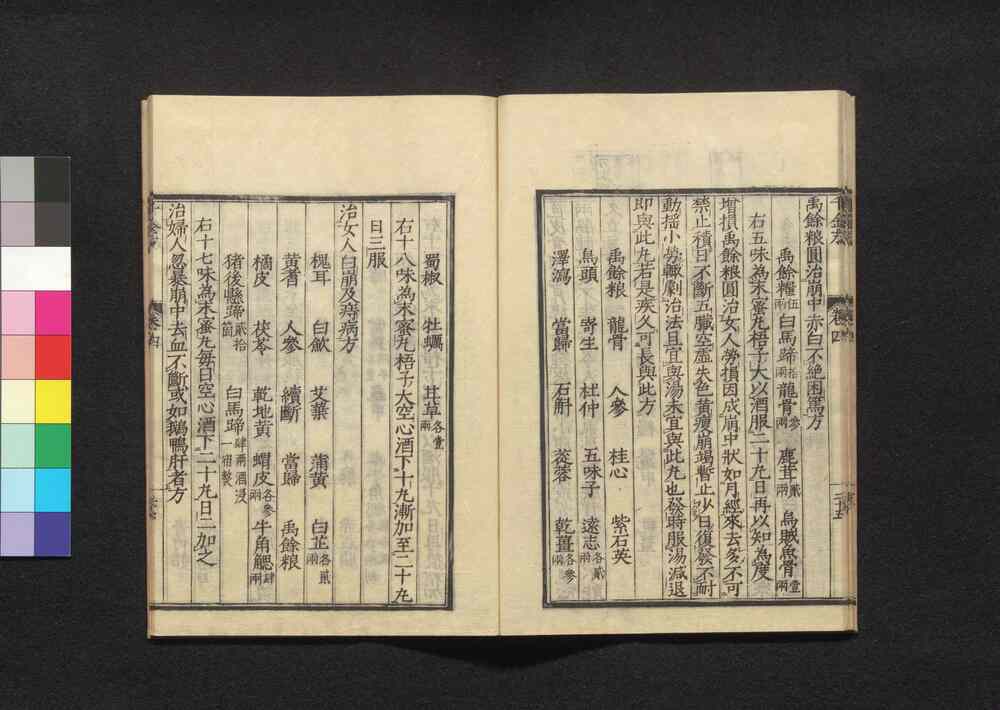 禹餘粮圓治崩中赤白不絶困篤方
禹餘粮伍兩 白馬蹄拾兩 龍骨參兩 鹿茸貳兩 烏賊魚骨壹兩
右五味為末蜜丸梧子大以酒服二十丸日再以知為度
增損禹餘粮圓治女人勞損因成崩中狀如月經來去多不可
禁止積日不斷五臟空虛失色黃瘦崩竭暫止少日復發不耐
動搖小勞輒劇治法且宜與湯未宜與此丸也發時服湯減退
即與此丸若是疾久可長與此方
禹餘粮 龍骨 人參 桂心 紫石英
烏頭 寄生 杜仲 五味子 遠志各貳兩
澤瀉 當歸 石斛 蓯蓉 乾薑各參兩
蜀椒 牡蠣 甘草各壹兩
右十八味為末蜜丸梧子大空心酒下十丸漸加至二十丸
日三服
治女人白崩及痔病方
槐耳 白歛 艾葉 蒲黃 白芷各貳兩
黃耆 人參 續斷 當歸 禹餘粮
橘皮 茯苓 乾地黃 蝟皮各參兩 牛角䚡肆兩
猪後懸蹄貳拾箇 白馬蹄肆兩酒浸一宿熬
右十七味為末蜜丸每日空心酒下二十丸日二加之
治婦人忽暴崩中去血不斷或如鵝鴨肝者方